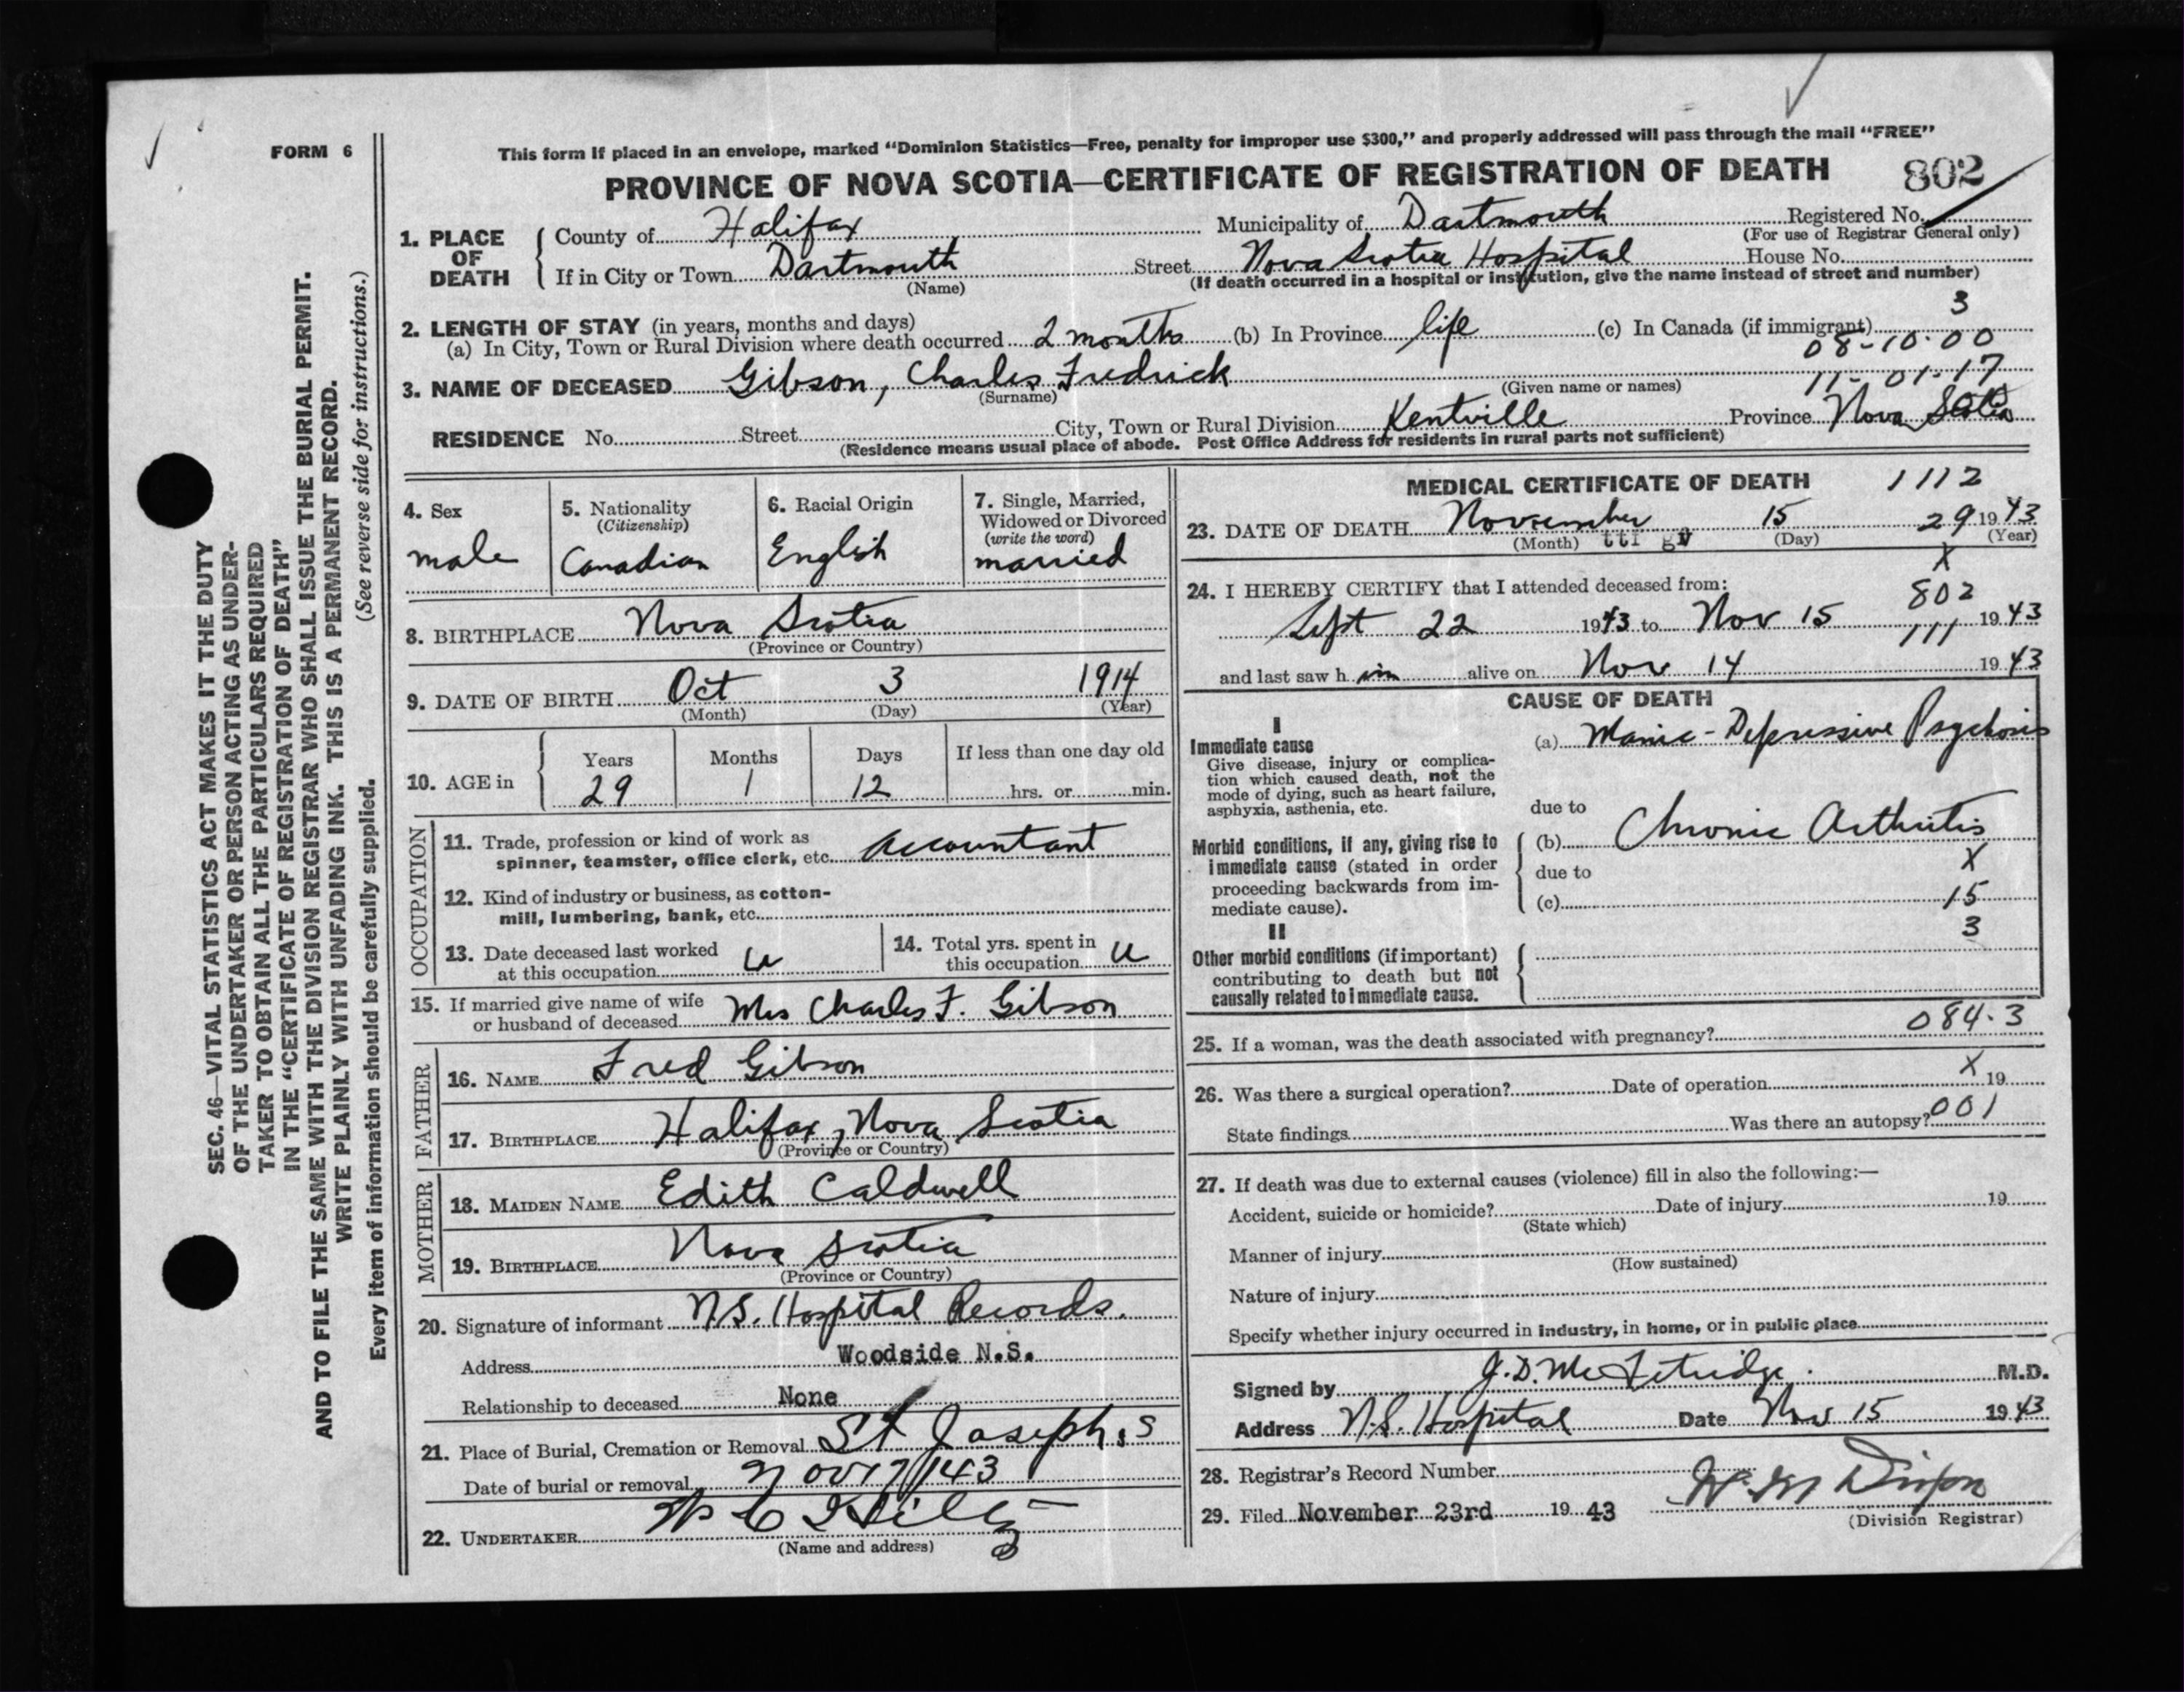 FORM 6
This form if placed in an envelope, marked "Dominion Statistics—Free, penalty for improper use $300," and properly addressed will pass through the mail "FREE"
PROVINCE OF NOVA SCOTIA—CERTIFICATE OF REGISTRATION OF DEATH
802
1. PLACE OF DEATH
County of Halifax Municipality of Dartmouth Registered No.
(For use of Registrar General only)
If in City or Town Dartmouth Street Nova Scotia Hospital House No.
(Name) (If death occurred in a hospital or institution, give the name instead of street and number)
2. LENGTH OF STAY (in years, months and days) 3
(a) In City, Town or Rural Division where death occurred 2 months (b) In Province life (c) In Canada (if immigrant)
08-10-00
3. NAME OF DECEASED Gibson, Charles Fredrick 11-01-17
(Surname) (Given name or names)
RESIDENCE No. Street City, Town or Rural Division Kentville Province Nova Scotia
(Residence means usual place of abode. Post Office Address for residents in rural parts not sufficient)
4. Sex
male
5. Nationality
(Citizenship)
Canadian
6. Racial Origin
English
7. Single, Married,
Widowed or Divorced
(write the word)
married
8. BIRTHPLACE Nova Scotia
(Province or Country)
9. DATE OF BIRTH Oct 3 1914
(Month) (Day) (Year)
10. AGE in
Years Months Days If less than one day old
29 1 12 hrs. or min.
OCCUPATION
11. Trade, profession or kind of work as
spinner, teamster, office clerk, etc. accountant
12. Kind of industry or business, as cotton-
mill, lumbering, bank, etc.
13. Date deceased last worked
at this occupation u
14. Total yrs. spent in
this occupation u
15. If married give name of wife
or husband of deceased Mrs Charles F. Gibson
FATHER
16. NAME Fred Gibson
17. BIRTHPLACE Halifax, Nova Scotia
(Province or Country)
MOTHER
18. MAIDEN NAME Edith Caldwell
19. BIRTHPLACE Nova Scotia
(Province or Country)
20. Signature of informant N.S. Hospital Records.
Address Woodside N.S.
Relationship to deceased None
21. Place of Burial, Cremation or Removal St Joseph,s
Date of burial or removal Nov 17/143
22. UNDERTAKER
(Name and address)
MEDICAL CERTIFICATE OF DEATH 1112
23. DATE OF DEATH November 15 29 1943
(Month) (Day) (Year)
X
24. I HEREBY CERTIFY that I attended deceased from:
802
Sept 22 1943 to Nov 15 1943
111
and last saw h im alive on Nov 14 1943
CAUSE OF DEATH
I
Immediate cause
Give disease, injury or complica-
tion which caused death, not the
mode of dying, such as heart failure,
asphyxia, asthenia, etc.
(a) Manic-Depressive Psychosis
due to
Morbid conditions, if any, giving rise to
immediate cause (stated in order
proceeding backwards from im-
mediate cause).
(b) Chronic Arthritis
X
due to
(c) 15
3
II
Other morbid conditions (if important)
contributing to death but not
causally related to immediate cause.
084.3
25. If a woman, was the death associated with pregnancy?
X
26. Was there a surgical operation? Date of operation 19
State findings Was there an autopsy? 001
27. If death was due to external causes (violence) fill in also the following:—
Accident, suicide or homicide? Date of injury 19
(State which)
Manner of injury
(How sustained)
Nature of injury
Specify whether injury occurred in industry, in home, or in public place
Signed by J.D. McFetridge. M.D.
Address N.S. Hospital Date Nov 15 1943
28. Registrar's Record Number
29. Filed November 23rd 1943
(Division Registrar)
SEC. 46—VITAL STATISTICS ACT MAKES IT THE DUTY
OF THE UNDERTAKER OR PERSON ACTING AS UNDER-
TAKER TO OBTAIN ALL THE PARTICULARS REQUIRED
IN THE "CERTIFICATE OF REGISTRATION OF DEATH"
AND TO FILE THE SAME WITH THE DIVISION REGISTRAR WHO SHALL ISSUE THE BURIAL PERMIT.
WRITE PLAINLY WITH UNFADING INK. THIS IS A PERMANENT RECORD.
Every item of information should be carefully supplied. (See reverse side for instructions.)